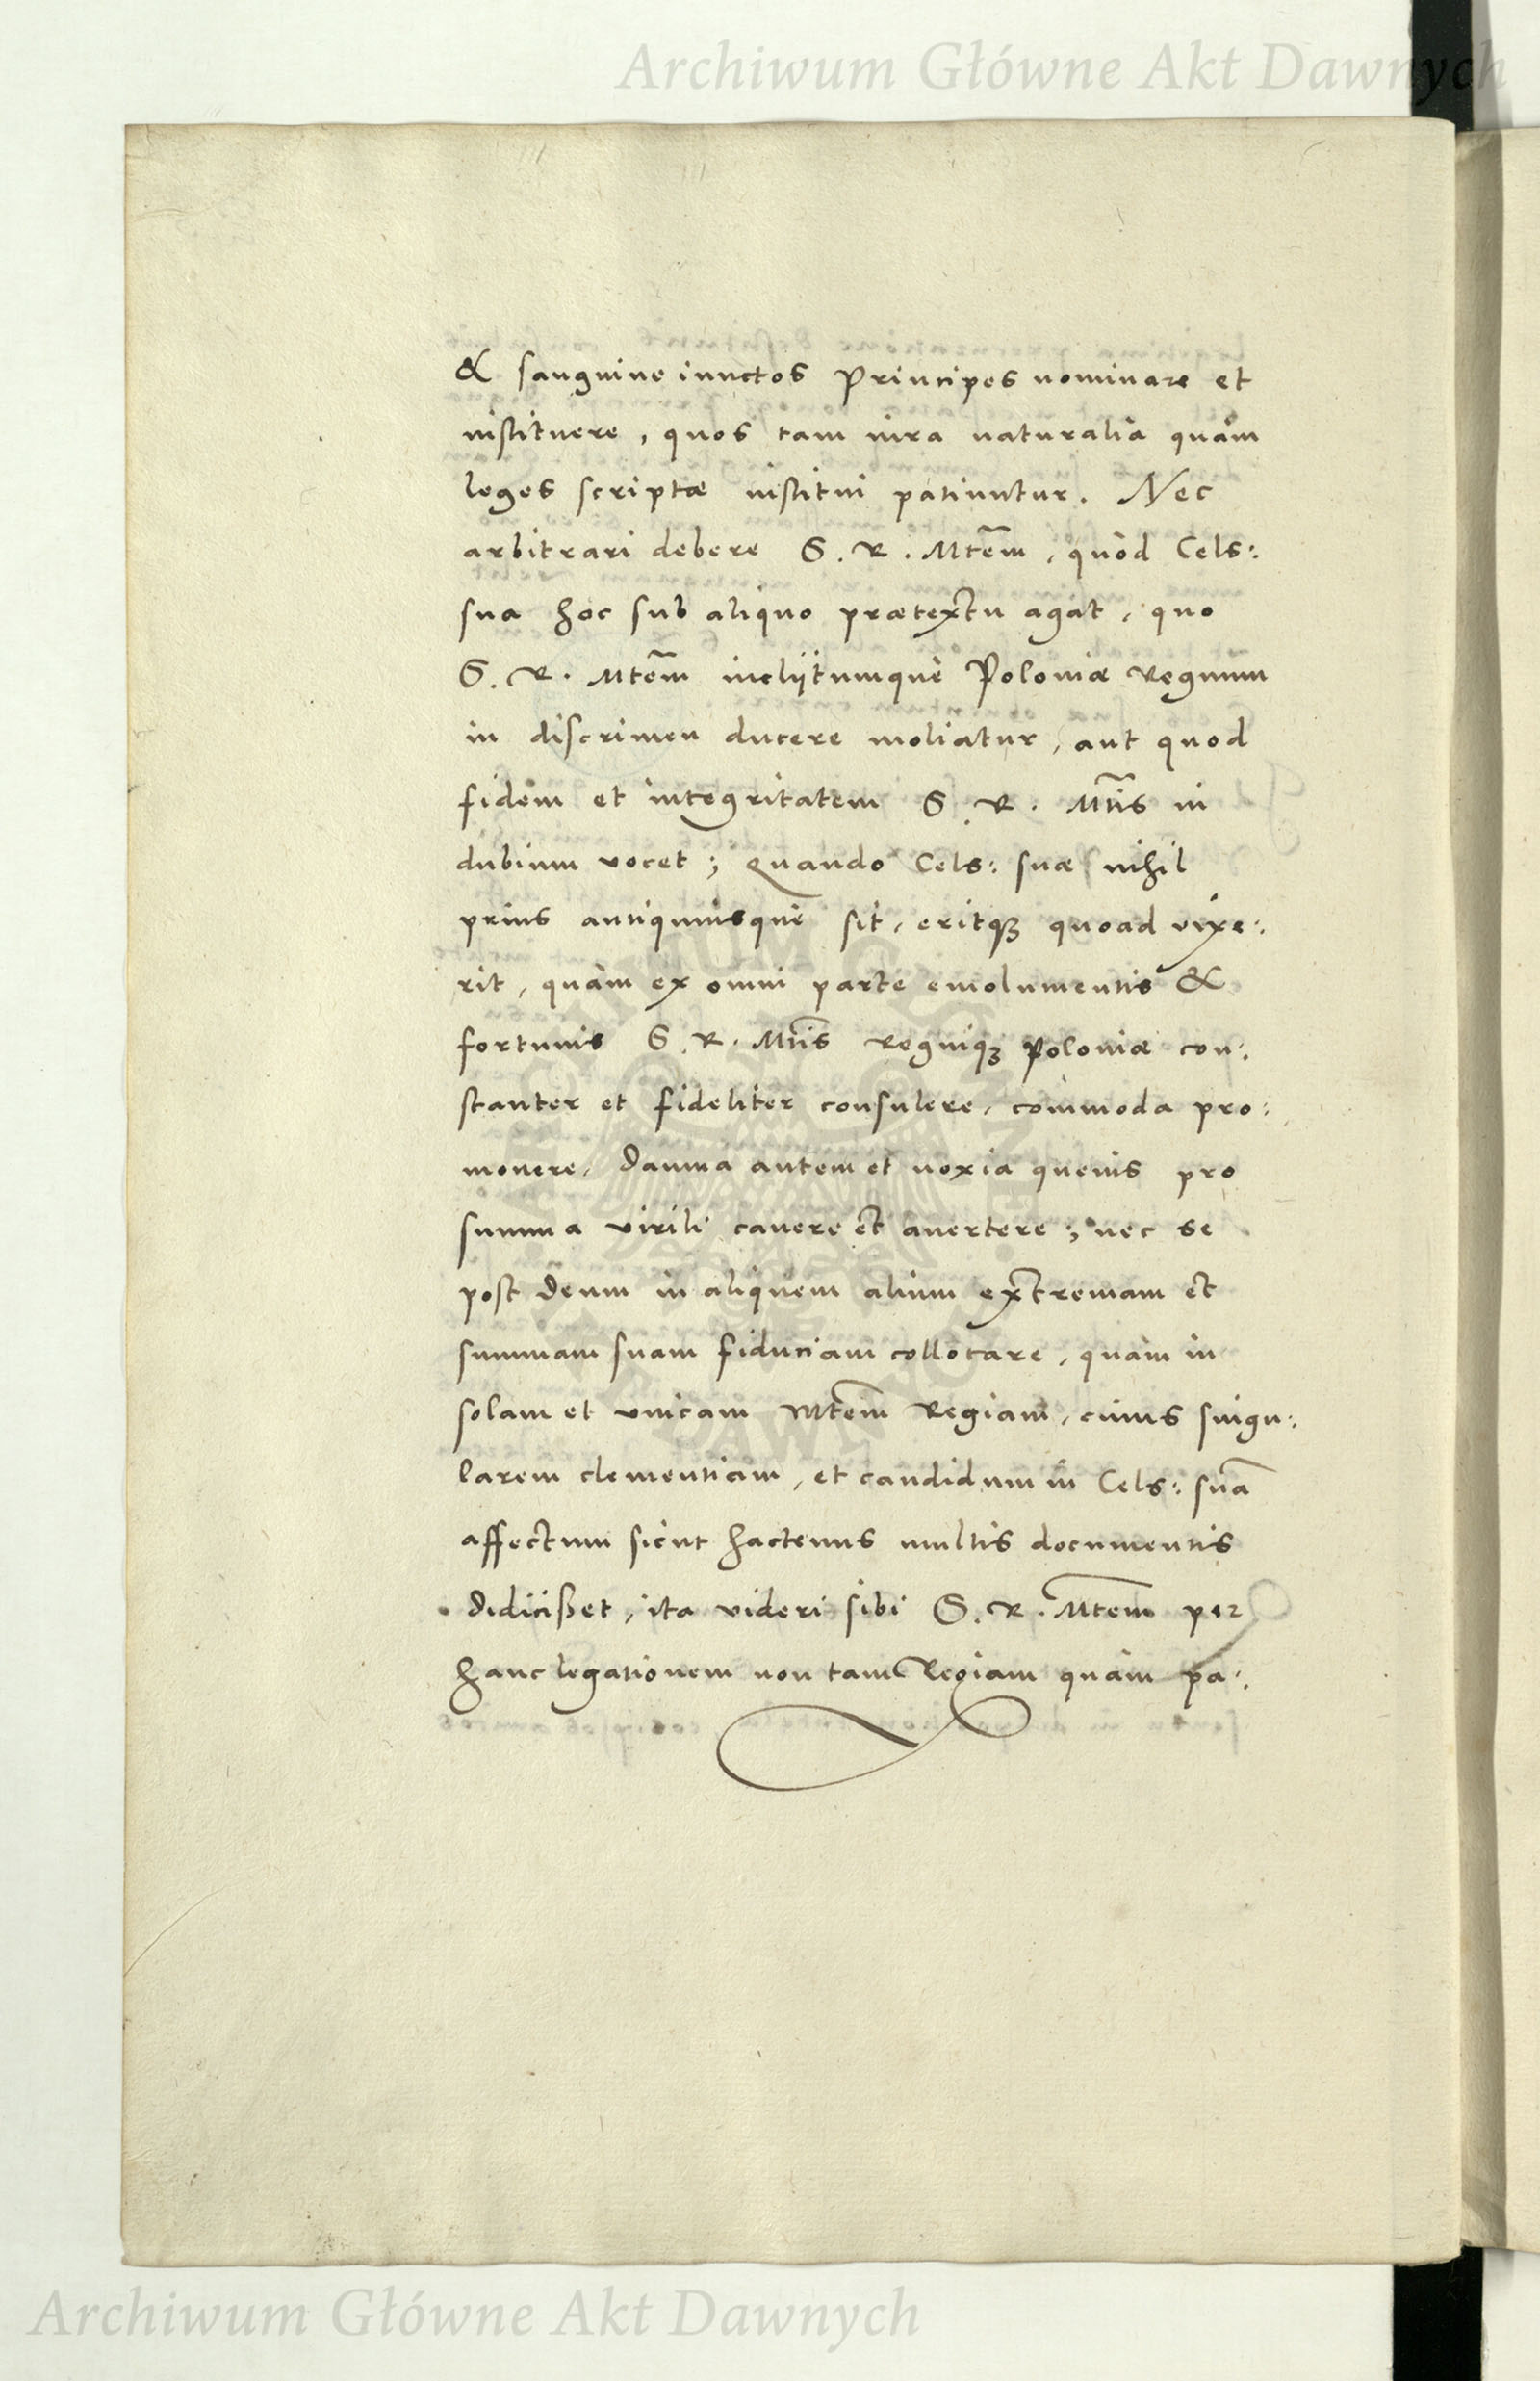 Archiwum Główne Akt Dawnych
& sanguine iunctos Principes nominare et
instituere, quos tam iura naturalia quàm
leges scriptæ institui patiuntur. Nec
arbitrari debere S. R. Mtēm, quòd Cels:
sua hoc sub aliquo prætextu agat, quo
S. R. Mtēm inclÿtumquè Poloniæ Regnum
in discrimen ducere moliatur, aut quod
fidem et integritatem S. R. Mtīs in
dubium vocet; Quando Cels: suæ nihil
prius antiquiusquè sit, eritqꝫ quoad vixe:
rit, quàm ex omni parte emolumentis &
fortunis S. R. Mtīs Regniqꝫ Poloniæ con:
stanter et fideliter consulere, commoda pro:
mouere, damna autem et noxia queuis pro
summa virili cauere et auertere; nec se
post deum in aliquem alium extremam et
summam suam fiduciam collocare, quàm in
solam et vnicam Mtēm Regiam, cuius singu:
larem clementiam, et candidum in Cels: suā
affectum sicut hactenus multis documentis
didicißet, ita videri sibi S. R. Mtēm per
hanc legationem non tam Regiam quàm pa:
Archiwum Główne Akt Dawnych